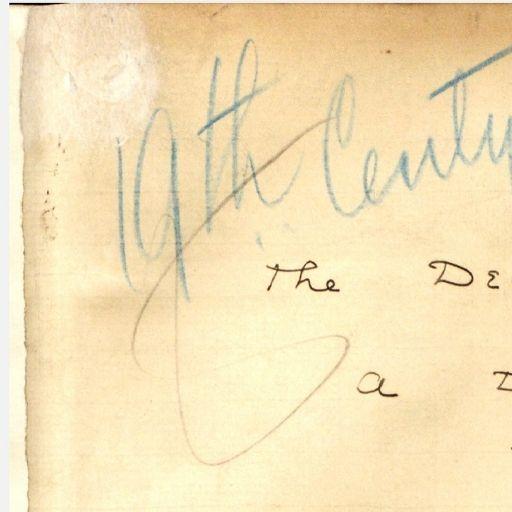 19th Centu
The DE
a D